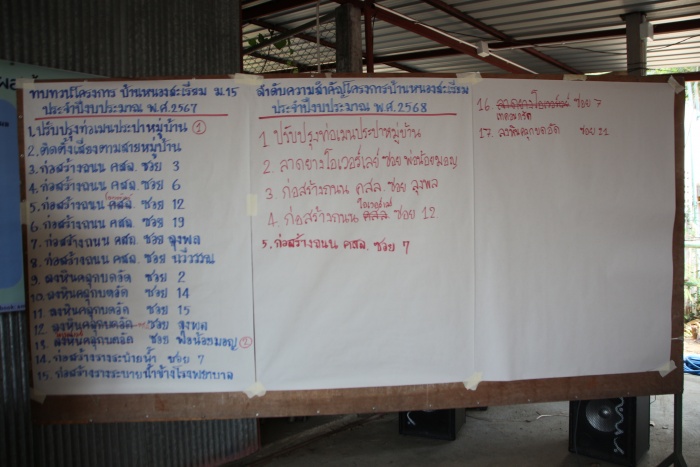 ทบทวนโครงการ บ้านหนองสะเรียม ม.15
ประจำปีงบประมาณ พ.ศ.2567
1. ปรับปรุงท่อเมนประปาหมู่บ้าน ①
2. ติดตั้งเสียงตามสายหมู่บ้าน
3. ก่อสร้างถนน คสล. ซอย 3
4. ก่อสร้างถนน คสล. ซอย 6
5. ก่อสร้างถนน คสล. ซอย 12
6. ก่อสร้างถนน คสล. ซอย 19
7. ก่อสร้างถนน คสล. ซอย ลุงพล
8. ก่อสร้างถนน คสล. ซอย
9. ลงหินคลุกบดอัด ซอย 2
10. ลงหินคลุกบดอัด ซอย 14
11. ลงหินคลุกบดอัด ซอย 15
12. ลงหินคลุกบดอัด ซอย ลุงพล
13. ลงหินคลุกบดอัด ซอย พ่อน้อยมอญ ②
14. ก่อสร้างรางระบายน้ำ ซอย 7
15. ก่อสร้างรางระบายน้ำข้างโรงพยาบาล
ลำดับความสำคัญโครงการบ้านหนองสะเรียม
ประจำปีงบประมาณ พ.ศ. 2568
1. ปรับปรุงท่อเมนประปาหมู่บ้าน
2. ลาดยางโอเวอร์เลย์ ซอย พ่อน้อยมอญ
3. ก่อสร้างถนน คสล. ซอย ลุงพล
โอเวอร์เลย์
4. ก่อสร้างถนน คสล. ซอย 12
5. ก่อสร้างถนน คสล. ซอย 7
16. ลาดยางโอเวอร์เลย์ ซอย 7
เทคอนกรีต
17. ลงหินคลุกบดอัด ซอย 11